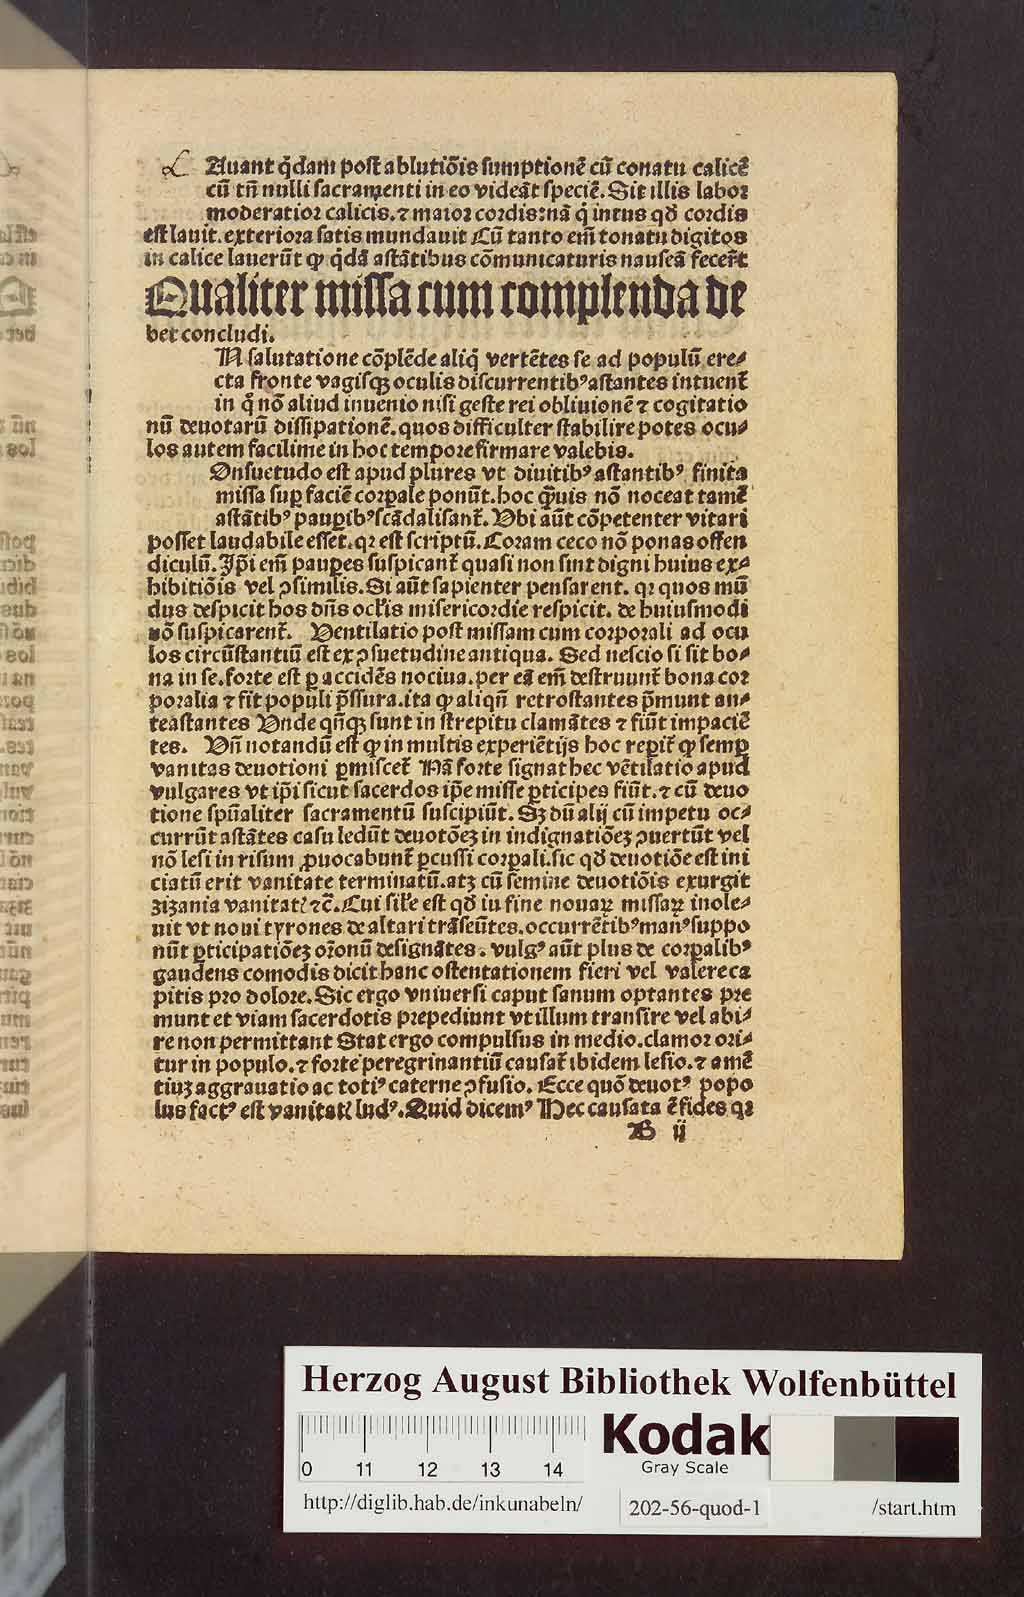 L Auant q̇dam post ablutiōis sumptionē cū conatu calicē
cū tñ nulli sacramenti in eo videāt speciē. Sit illis labor
moderatior calicis. ⁊ maior cordis: nā q̇ intus qď cordis
est lauit. exteriora satis mundauit Cū tanto em̄ tonatu digitos
in calice lauerūt ꝙ q̇dā astātibus cōmunicaturis nauseā fecer̄t
Qualiter missa cum complenda de
bet concludi.
N salutatione cōplēde aliq̇ vertētes se ad populū ere⸗
cta fronte vagisqꝫ oculis discurrentibꝰ astantes intuent̄
in q̊ nō aliud inuenio nisi geste rei obliuionē ⁊ cogitatio
nū deuotarū dissipationē. quos difficulter stabilire potes ocu⸗
los autem facilime in hoc tempore firmare valebis.
Onsuetudo est apud plures vt diuitibꝰ astantibꝰ finita
missa suꝑ faciē corꝑale ponūt. hoc qͣ̄uis nō noceat tamē
astātibꝰ pauꝑibꝰ scādalisant̄. Vbi aūt cōpetenter vitari
posset laudabile esset. qꝛ est scriptū. Coram ceco nō ponas offen
diculū. Ip̄i em̄ pauꝑes suspicant̄ quasi non sint digni huius ex⸗
hibitiōis vel ꝯsimilis. Si aūt sapienter pensarent. qꝛ quos mū
dus despicit hos dn̄s ocl̓is misericordie respicit. de huiusmodi
nō suspicarent̄. Ventilatio post missam cum corporali ad ocu
los circūstantiū est ex ꝯsuetudine antiqua. Sed nescio si sit bo⸗
na in se. forte est ꝑ accidēs nociua. per eā em̄ destruunt̄ bona cor
poralia ⁊ fit populi p̄ssura. ita ꝙ aliqn̄ retrostantes p̄munt an⸗
teastantes Vnde qn̄qꝫ sunt in strepitu clamātes ⁊ fiūt impaciē
tes. Vn̄ notandū est ꝙ in multis experiētijs hoc reꝑit̄ ꝙ semꝑ
vanitas deuotioni ꝑmiscet̄ Nā forte signat hec vētilatio apud
vulgares vt ip̄i sicut sacerdos ip̄e misse ꝑticipes fiūt. ⁊ cū deuo
tione sp̄ualiter sacramentū suscipiūt. Sꝫ dū alij cū impetu oc⸗
currūt astātes casu ledūt deuotōeꝫ in indignatiōeꝫ ꝯuertūt vel
nō lesi in risum ꝓuocabunt̄ ꝑcussi corꝑali. sic qď deuotiōe est ini
ciatū erit vanitate terminatū. atꝫ cū semine deuotiōis exurgit
zizania vanitatꝭ ⁊c̄. Cui sil̓e est qď in fine nouaꝝ missaꝝ inole⸗
uit vt noui tyrones de altari trāseūtes. occurrētibꝰ manꝰ suppo
nūt ꝑticipatiōeꝫ or̄onū designātes. vulgꝰ aūt plus de corꝑalibꝰ
gaudens comodis dicit hanc ostentationem fieri vel valere ca
pitis pro dolore. Sic ergo vniuersi caput sanum optantes pre
munt et viam sacerdotis prepediunt vt illum transire vel abi⸗
re non permittant Stat ergo compulsus in medio. clamor ori⸗
tur in populo. ⁊ forte peregrinantiū causat̄ ibidem lesio. ⁊ amē
tiuꝫ aggrauatio ac totiꝰ caterne ꝯfusio. Ecce quō deuotꝰ popo
lus factꝰ est vanitatꝭ ludꝰ. Quid dicemꝰ Nec causata ē fides qꝛ
B ij
Herzog August Bibliothek Wolfenbüttel
0 11 12 13 14
Kodak
Gray Scale
http://diglib.hab.de/inkunabeln/ 202-56-quod-1 /start.htm